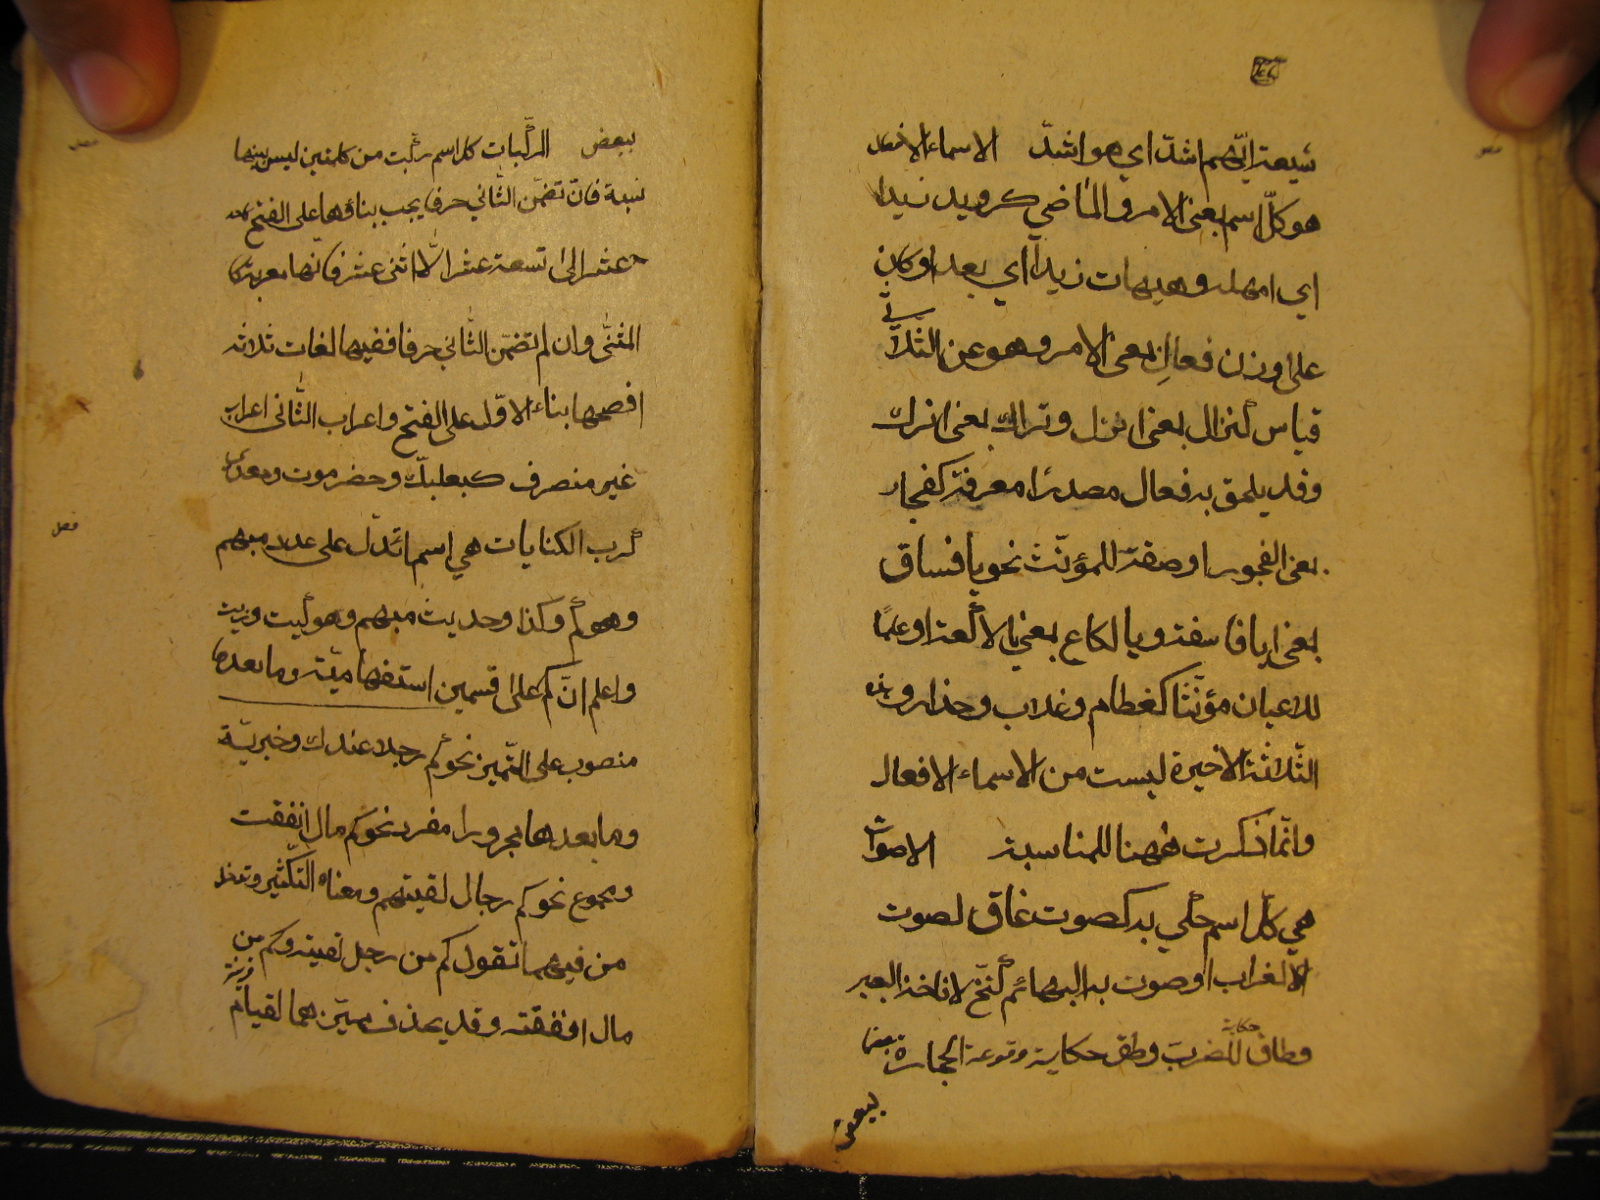 شيعة ايّهم اشدّ اي هو اشدّ الاسماء الافعال
هو كلّ اسم بمعنى الامر و الماضي كرويد زيدا
اي امهله وهيهات زيداً اي بعد او كان
على وزن فعالِ بمعنى الامر وهو عن الثلاثي
قياس كنزال بمعنى انزل وتراك بمعنى اترك
وقد يلحق به فعال مصدرًا معرفة كفجار
بمعنى الفجور او صفة للمؤنّث نحو يا فساق
بمعنى يا فاسقة ويا لكاع بمعنى يا لاكعة او علمًا
للاعيان مؤنّثا كغطام وغلاب وحذار وهذه
الثّلاثة الاخيرة ليست من الاسماء الافعال
وانّما ذكرت ههنا للمناسبة الاصوات
هي كلّ اسم حكي به كصوت غاق لصوت
الغراب او صوت به البهائم كنخّ لاناخة البعير
وطاق حكاية للضرب وطق حكاية وقوعة الحجارة بعضها
ببعض
ببعض المركّبات كل اسم ركّبت من كلمتين ليس بينهما
نسبة فان تضمّن الثّاني حرفا يجب بناؤهما على الفتح كاحد
عشر الى تسعة عشر الّا اثنى عشر فانها معربة كا
المثنّى وان لم تضمّن الثّاني حرفا ففيها لغات ثلاثة
افصحها بناء الاوّل على الفتح واعراب الثّانى اعراب
غير منصرف كبعلبكّ وحضرموت ومعدى
كرب الكنايات هي اسماء تدلّ على عدد مبهم
وهو كم وكذا وحديث مبهم وهو كيت وذيت
واعلم انّ كم على قسمين استفهاميّة وما بعدها
منصوب على التّميز نحو كم رجلا عندك وخبريّة
وما بعدها مجرورا مفرد نحو كم مال انفقت
ومجموع نحو كم رجال لقيتهم ومعناه التّكثير وتدخل
من فيهما تقول كم من رجل لقيته وكم من
مال انفقته وقد يحذف مميّزهما لقيام قرينة
فصل